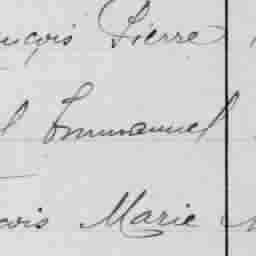 nçois Pierre
l Emmanuel
çois Marie